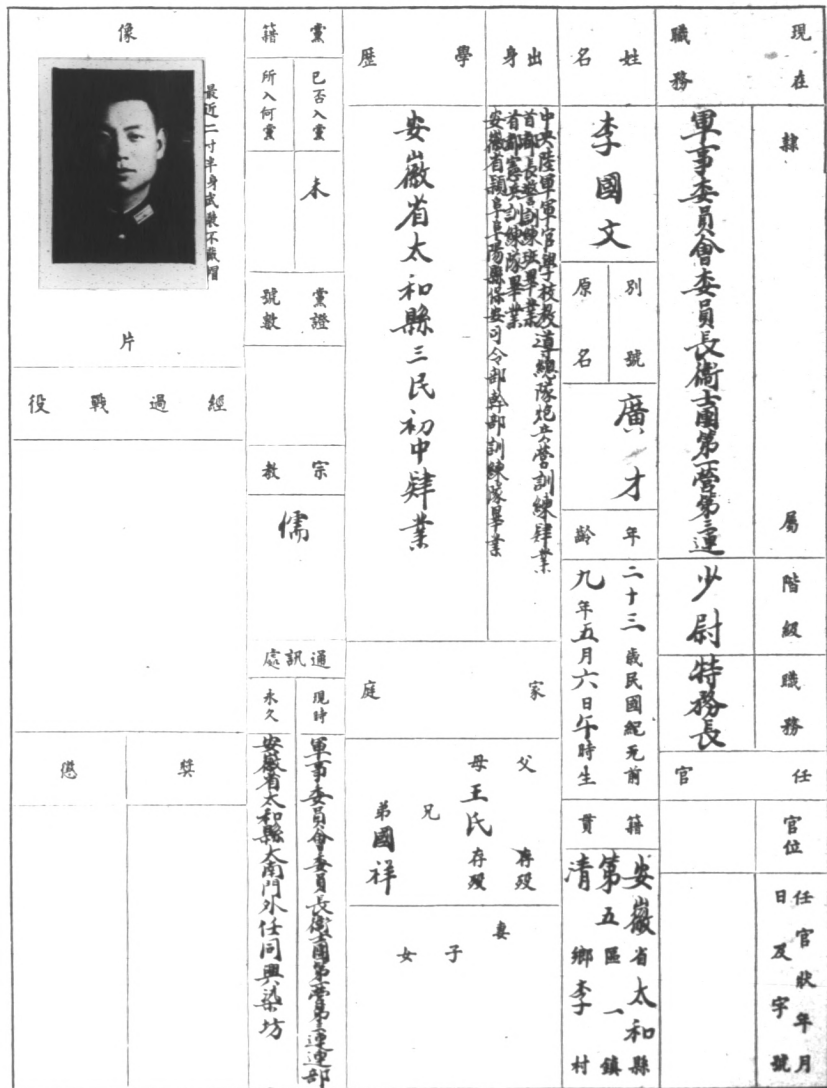 現在職務
隸屬
軍事委員會委員長衞士團第一營第三連
階級
少尉
職務
特務長
任官
官位
任官狀年月日及字號
姓名
李國文
別號
原名
廣才
年齡
二十三歲民國紀元前
九年五月六日午時生
籍貫
安徽省太和縣
第五區一鎮
清鄉李村
出身
中央陸軍軍官學校教導總隊炮兵營訓練肄業
首都長警訓練班畢業
首都憲兵訓練隊畢業
安徽省潁阜阜陽縣保安司令部幹部訓練隊畢業
學歷
安徽省太和縣三民初中肄業
家庭
父 存歿
母 王氏 存歿
兄
弟 國祥
妻
子
女
黨籍
已否入黨
未
所入何黨
黨證號數
宗教
儒
通訊處
現時
軍事委員會委員長衞士團第一營第三連連部
永久
安徽省太和縣大南門外任同興染坊
像片
最近二寸半身武裝不戴帽
經過戰役
獎
懲